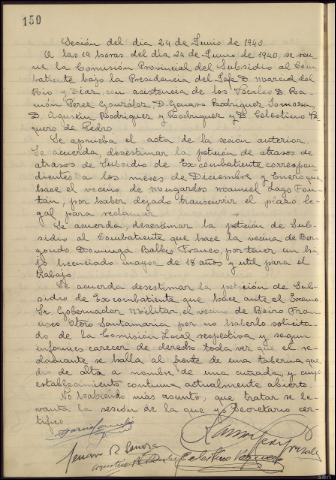 150
Sesión del dia 24 de Junio de 1940
A las 19 horas del dia 24 de Junio de 1940, se reu-
ne la Comisión Provincial del Subsidio al Com-
batiente bajo la Presidencia del Jefe D. Marcial del
Rio y Diaz, con asistencia de los Vocales D. Ra-
món Perez Gonzalez, D. Genaro Rodriguez Somoza,
D. Agustin Rodriguez y Rodriguez y D. Celestino
de Pedro.
Se aprueba el acta de la sesión anterior.
Se acuerda, desestimar la petición de atrasos de
atrasos de Subsidio de Ex combatiente correspon-
dientes a los meses de Diciembre y Enero que
hace el vecino de Mugardos Manuel Lago
por haber dejado transcurrir el plazo le-
gal para reclamar.
Se acuerda, desestimar la petición de Subsi-
dio al Combatiente que hace la vecina de Ber-
gondo Dominga Franco, por tener un hi-
jo licenciado mayor de 18 años y util para el
trabajo.
Se acuerda desestimar la petición de Subsi-
dio de Ex combatiente que hace ante el Excmo
Sr. Gobernador Militar, el vecino de Boiro Fran-
cisco Otero Santamaria por no haberlo solicita-
do de la Comisión Local respectiva y segun
informes carecer de derecho toda vez que el so-
licitante se halla al frente de una taberna que
dio de alta a nombre de una cuñada, y cuyo
establecimiento continua actualmente abierto.
No habiendo mas asunto, que tratar se le-
vanta la sesión de la que yo Secretario cer-
tifico.